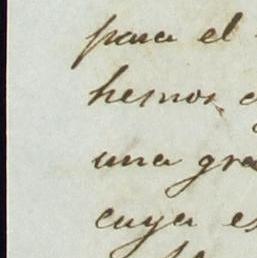 para el
hemos
una gra
cuya es